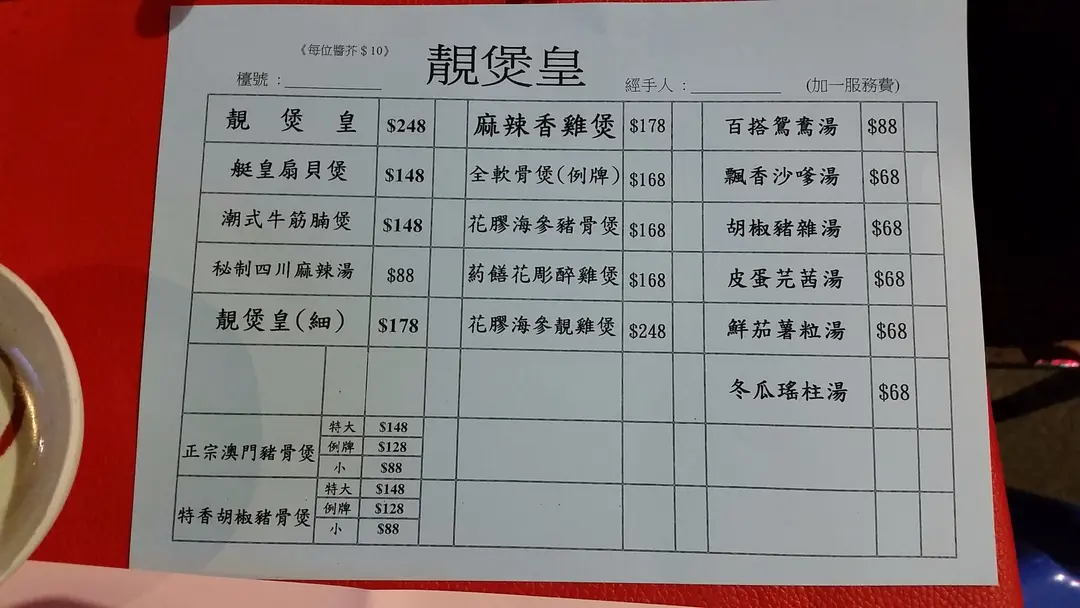 《每位醬芥 $10》
靚煲皇
檯號：
經手人：
(加一服務費)
靚 煲 皇 $248 麻辣香雞煲 $178 百搭鴛鴦湯 $88
艇皇扇貝煲 $148 全軟骨煲(例牌) $168 飄香沙嗲湯 $68
潮式牛筋腩煲 $148 花膠海參豬骨煲 $168 胡椒豬雜湯 $68
秘制四川麻辣湯 $88 葯饍花彫醉雞煲 $168 皮蛋芫茜湯 $68
靚煲皇(細) $178 花膠海參靚雞煲 $248 鮮茄薯粒湯 $68
冬瓜瑤柱湯 $68
正宗澳門豬骨煲
特大 $148
例牌 $128
小 $88
特香胡椒豬骨煲
特大 $148
例牌 $128
小 $88